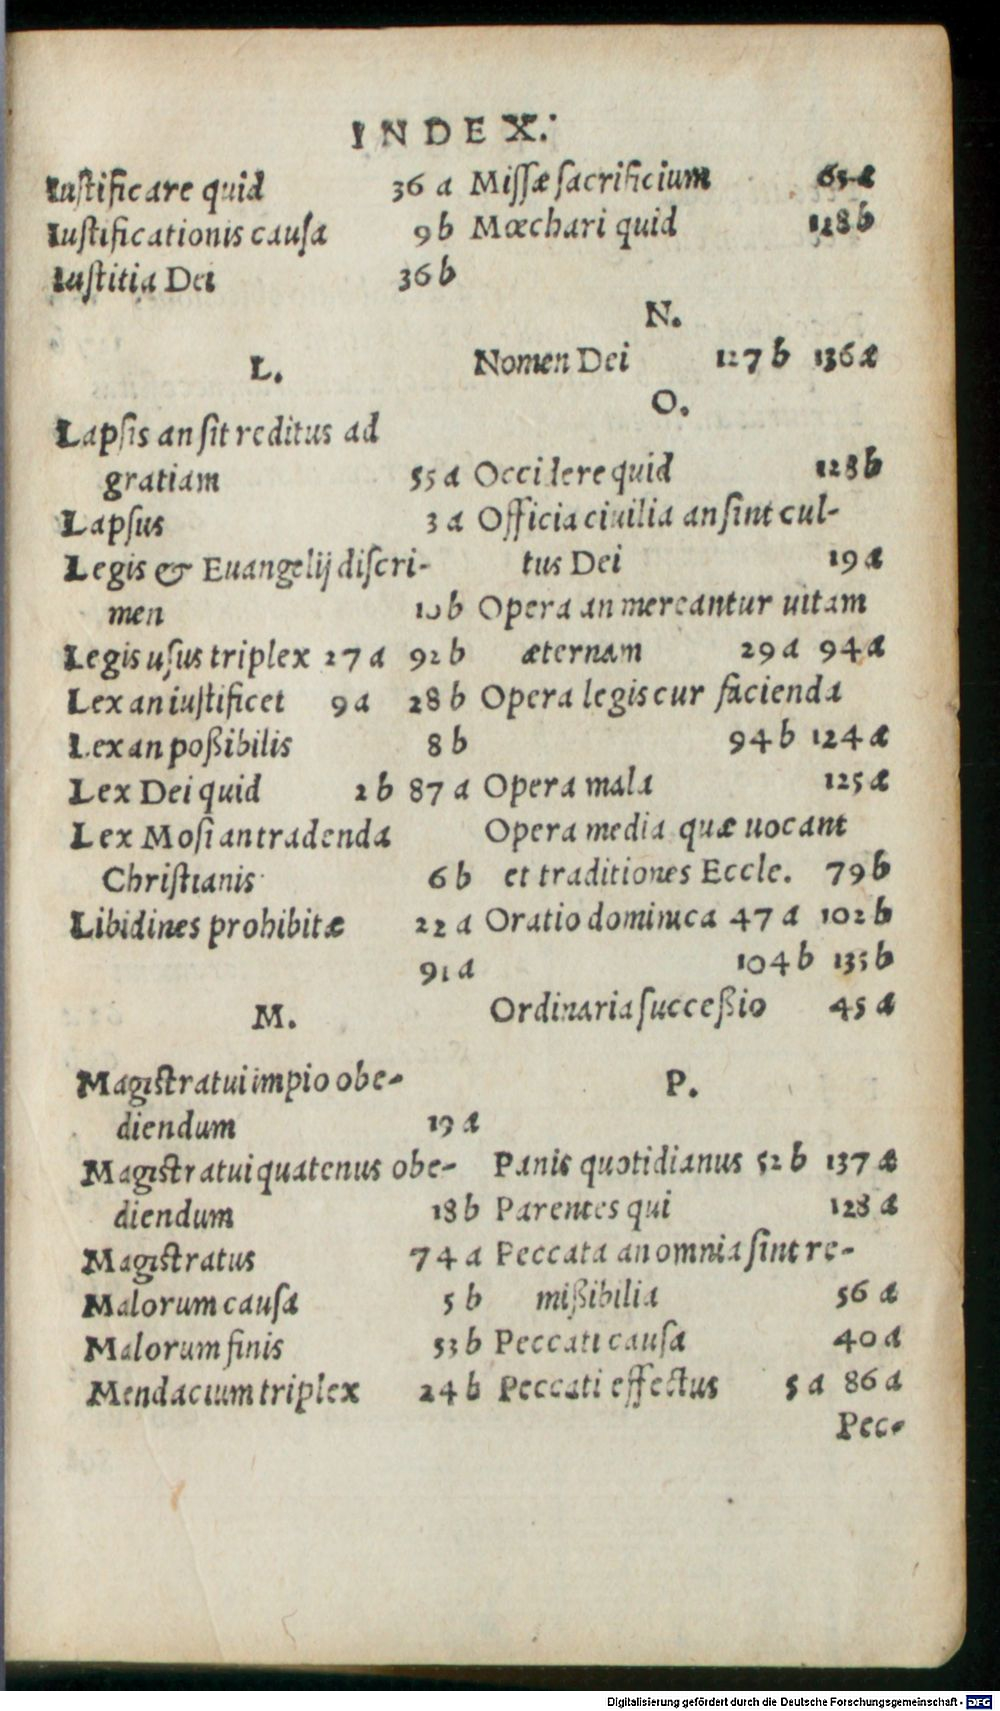 INDEX.
Iustificare quid 36 a
Iustificationis causa 9 b
Iustitia Dei 36 b
L.
Lapsis an sit reditus ad
gratiam 55 a
Lapsus 3 a
Legis & Euangelij discri-
men 10 b
Legis usus triplex 27 a 92 b
Lex an iustificet 9 a 28 b
Lex an poßibilis 8 b
Lex Dei quid 2 b 87 a
Lex Mosi an tradenda
Christianis 6 b
Libidines prohibitæ 22 a
91 a
M.
Magistratui impio obe-
diendum 19 a
Magistratui quatenus obe-
diendum 18 b
Magistratus 74 a
Malorum causa 5 b
Malorum finis 53 b
Mendacium triplex 24 b
Missæ sacrificium 65 a
Mœchari quid 128 b
N.
Nomen Dei 127 b 136 a
O.
Occidere quid 128 b
Officia ciuilia an sint cul-
tus Dei 19 a
Opera an mereantur uitam
æternam 29 a 94 a
Opera legis cur facienda
94 b 124 a
Opera mala 125 a
Opera media quæ uocant
et traditiones Eccle. 79 b
Oratio dominica 47 a 102 b
104 b 135 b
Ordinaria succeßio 45 a
P.
Panis quotidianus 52 b 137 a
Parentes qui 128 a
Peccata an omnia sint re-
mißibilia 56 a
Peccati causa 40 a
Peccati effectus 5 a 86 a
Pec-
Digitalisierung gefördert durch die Deutsche Forschungsgemeinschaft - DFG